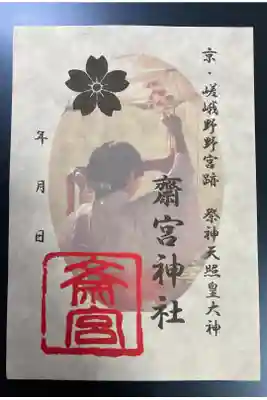 京・嵯峨野野宮跡 祭神天照皇大神
齋宮神社
年 月 日
斎宮